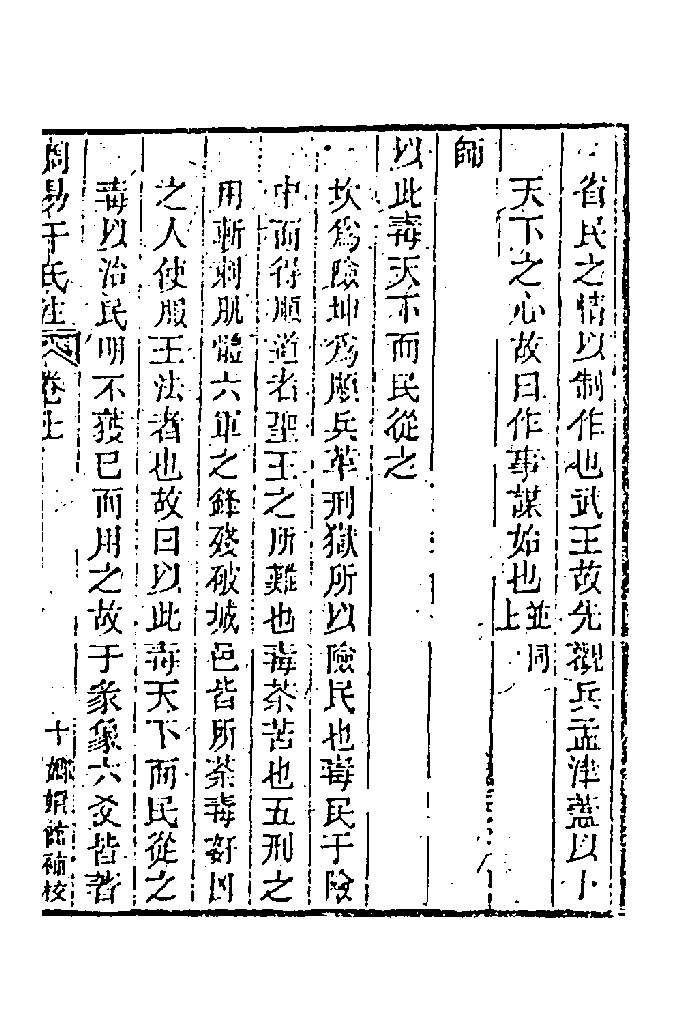 省民之情以制作也武王故先觀兵孟津蓋以卜
天下之心故曰作事謀始也並同上
師
以此毒天下而民從之
坎爲險坤爲順兵革刑獄所以險民也毒民于險
中而得順道者聖王之所難也毒荼苦也五刑之
用斬刺肌體六軍之鋒殘破城邑皆所荼毒奸凶
之人使服王法者也故曰以此毒天下而民從之
毒以治民明不獲已而用之故于彖象六爻皆著
周易干氏注 卷上 十 嫏嬛館補校